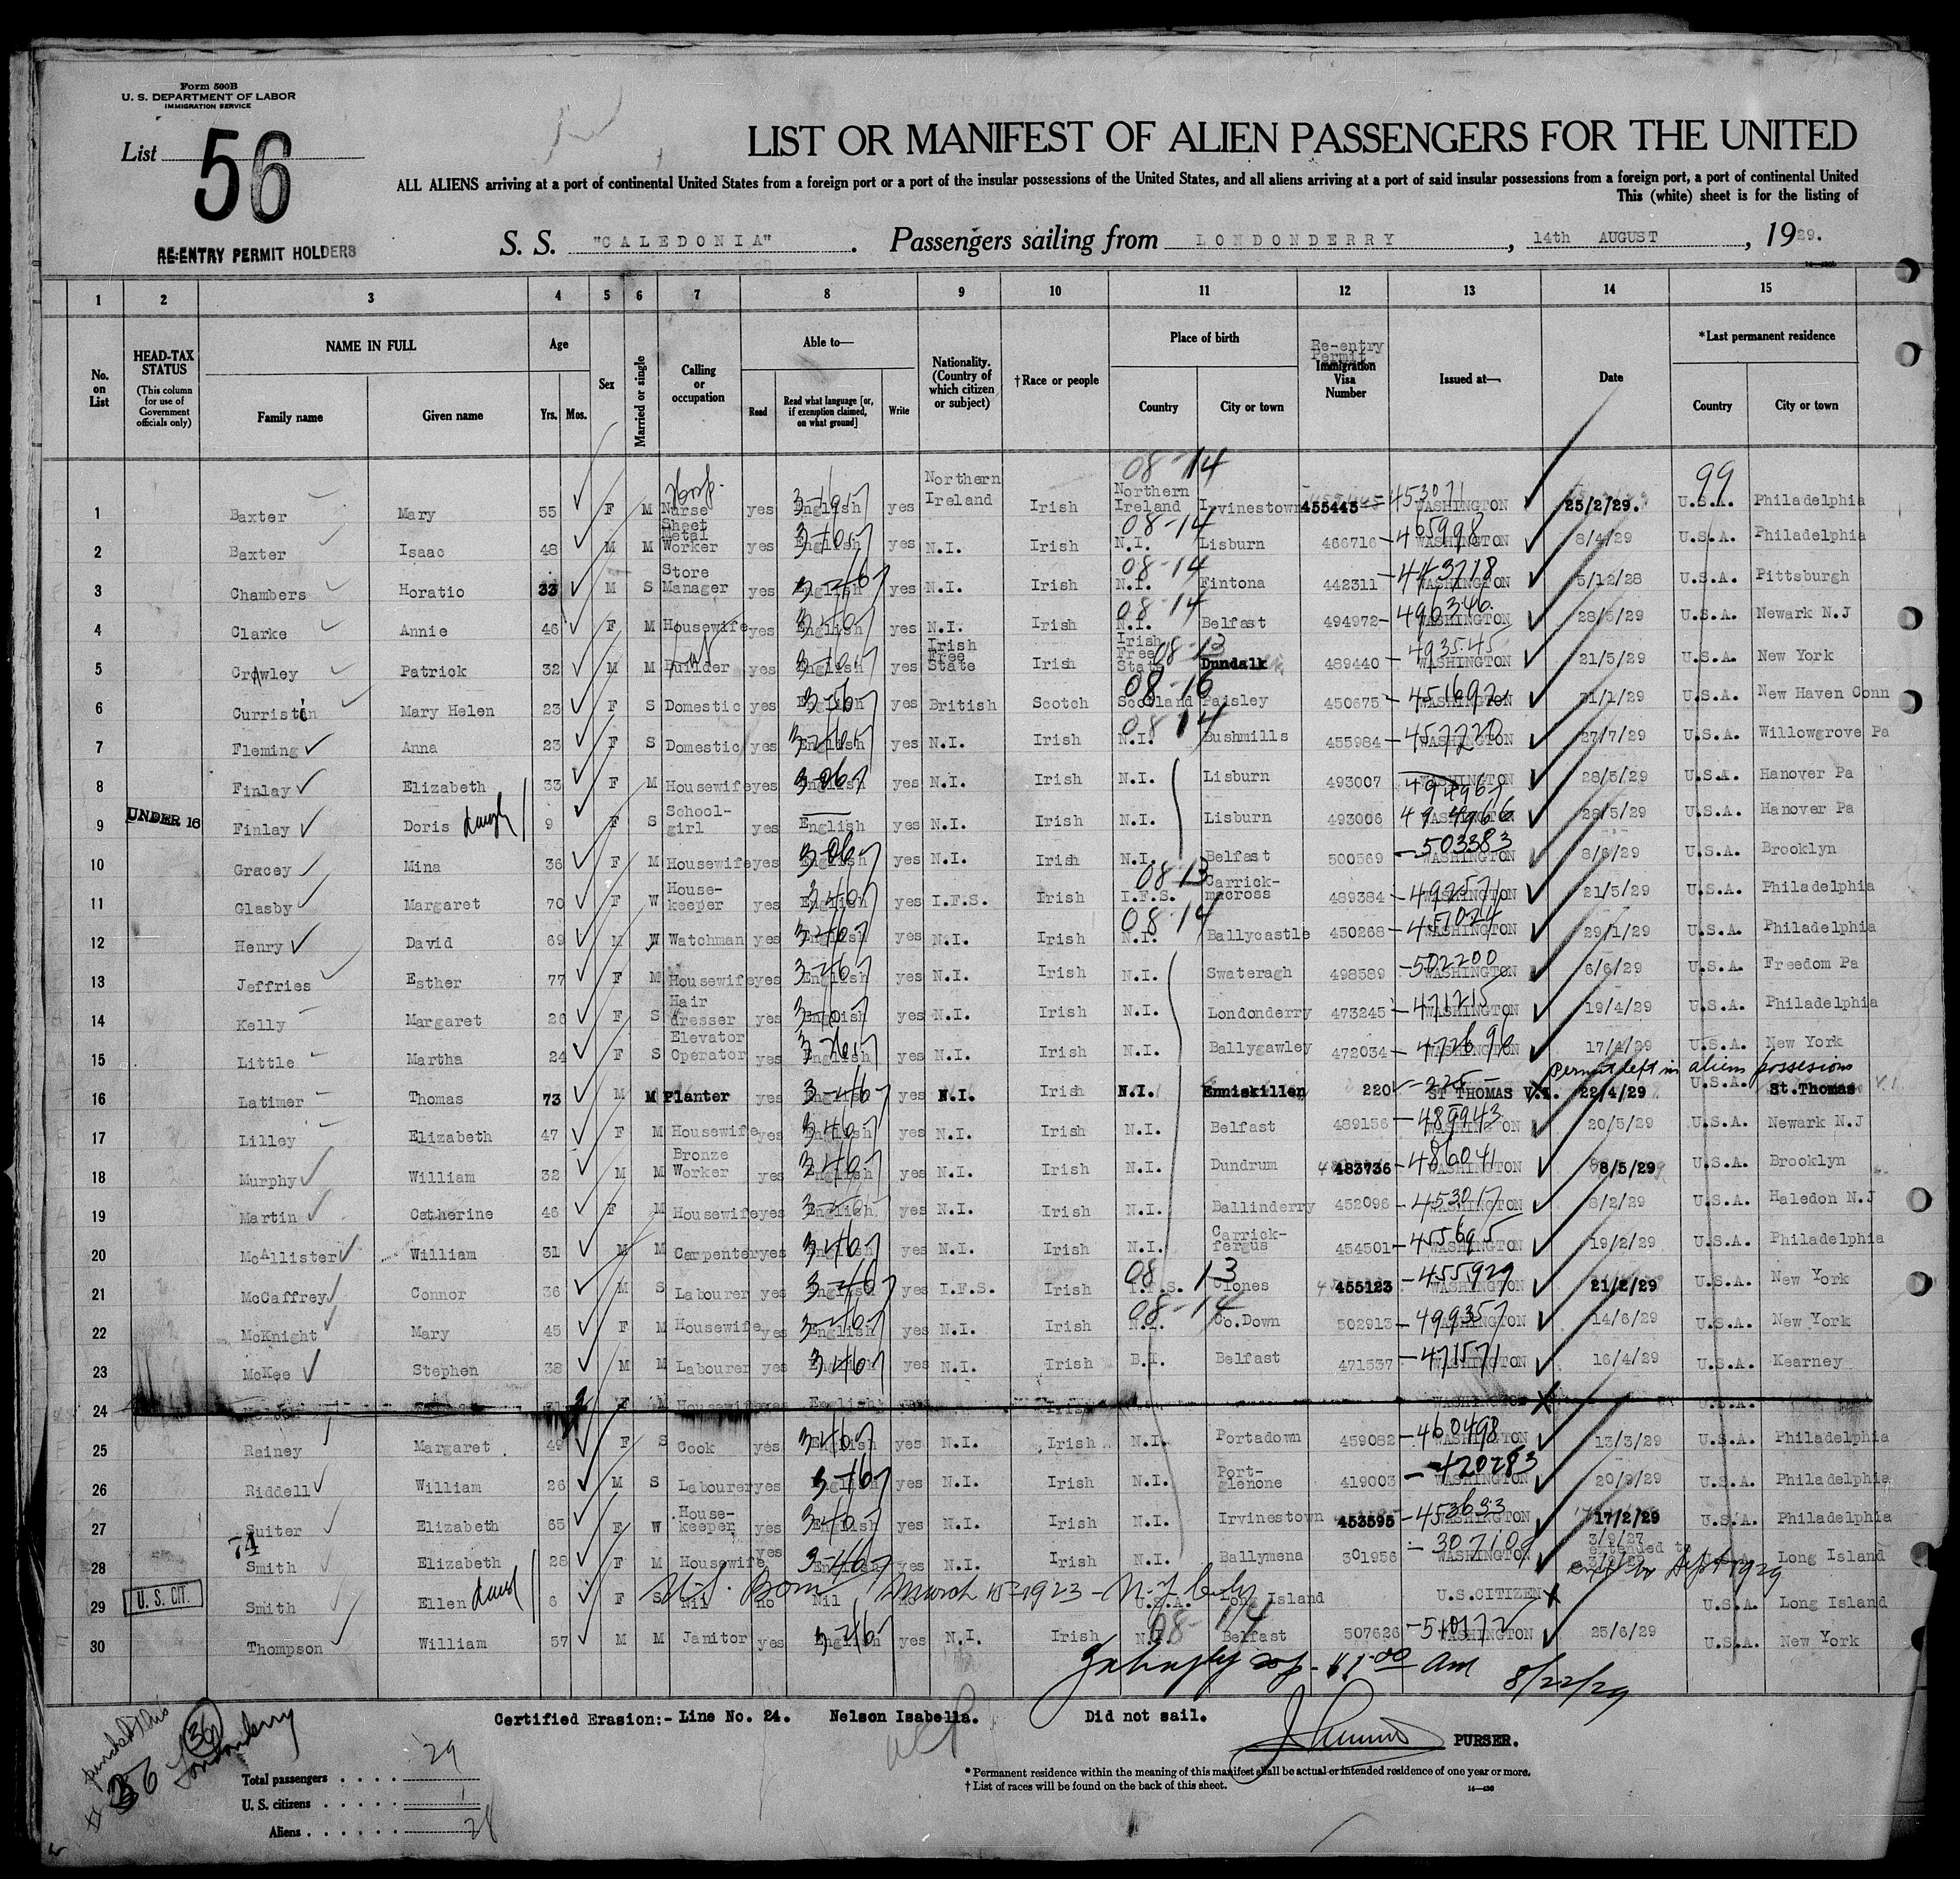 Form 500B
U. S. DEPARTMENT OF LABOR
IMMIGRATION SERVICE
List 56
LIST OR MANIFEST OF ALIEN PASSENGERS FOR THE UNITED
ALL ALIENS arriving at a port of continental United States from a foreign port or a port of the insular possessions of the United States, and all aliens arriving at a port of said insular possessions from a foreign port, a port of continental United
This (white) sheet is for the listing of
RE-ENTRY PERMIT HOLDERS
S. S. "CALEDONIA". Passengers sailing from LONDONDERRY, 14th AUGUST, 1929.
1 2 3 4 5 6 7 8 9 10 11 12 13 14 15
No. on List
HEAD-TAX STATUS (This column for use of Government officials only)
NAME IN FULL Family name Given name
Age Yrs. Mos.
Sex
Married or single
Calling or occupation
Able to— Read Read what language [or, if exemption claimed, on what ground] Write
Nationality. (Country of which citizen or subject)
†Race or people
Place of birth Country City or town
Re-entry Permit Immigration Visa Number
Issued at—
Date
*Last permanent residence Country City or town
08-14 99
1 Baxter Mary 55 F M Hosp. Nurse yes English yes Northern Ireland Irish Northern Ireland Irvinestown 455445 453071 WASHINGTON 25/2/29. U.S.A. Philadelphia
2 Baxter Isaac 48 M M Sheet Metal Worker yes English yes N.I. Irish 08-14 N.I. Lisburn 466716 465998 WASHINGTON 8/4/29 U.S.A. Philadelphia
3 Chambers Horatio 33 M S Store Manager yes English yes N.I. Irish 08-14 N.I. Fintona 442311 443718 WASHINGTON 5/12/28 U.S.A. Pittsburgh
4 Clarke Annie 46 F M Housewife yes English yes N.I. Irish 08-14 N.I. Belfast 494972 496346 WASHINGTON 28/5/29 U.S.A. Newark N.J
5 Crawley Patrick 32 M M Builder yes English yes Irish Free State Irish Irish Free State 08-13 Dundalk 489440 493545 WASHINGTON 21/5/29 U.S.A. New York
6 Curristin Mary Helen 23 F S Domestic yes English yes British Scotch 08-16 Scotland Paisley 450675 451692 WASHINGTON 31/1/29 U.S.A. New Haven Conn
7 Fleming Anna 23 F S Domestic yes English yes N.I. Irish 08 14 N.I. Bushmills 455984 457220 WASHINGTON 27/7/29 U.S.A. Willowgrove Pa
8 Finlay Elizabeth 33 F M Housewife yes English yes N.I. Irish N.I. Lisburn 493007 WASHINGTON 28/5/29 U.S.A. Hanover Pa
9 UNDER 16 Finlay Doris daugh 9 F S School-girl yes English yes N.I. Irish N.I. Lisburn 493006 WASHINGTON 28/5/29 U.S.A. Hanover Pa
10 Gracey Mina 36 F M Housewife yes English yes N.I. Irish N.I. Belfast 500569 503383 WASHINGTON 8/6/29 U.S.A. Brooklyn
11 Glasby Margaret 70 F W House-keeper yes English yes I.F.S. Irish 08-13 I.F.S. Carrick-macross 489384 492571 WASHINGTON 21/5/29 U.S.A. Philadelphia
12 Henry David 69 M W Watchman yes English yes N.I. Irish 08-14 N.I. Ballycastle 450268 451024 WASHINGTON 29/1/29 U.S.A. Philadelphia
13 Jeffries Esther 77 F M Housewife yes English yes N.I. Irish N.I. Swateragh 498589 502200 WASHINGTON 6/6/29 U.S.A. Freedom Pa
14 Kelly Margaret 26 F S Hair dresser yes English yes N.I. Irish N.I. Londonderry 473245 471215 WASHINGTON 19/4/29 U.S.A. Philadelphia
15 Little Martha 24 F S Elevator Operator yes English yes N.I. Irish N.I. Ballygawley 472034 472696 WASHINGTON 17/4/29 U.S.A. New York
Permit left in aliens possession
16 Latimer Thomas 73 M M Planter yes English yes N.I. Irish N.I. Enniskillen 220 225 ST THOMAS V.I. 22/4/29 U.S.A. St.Thomas V.I
17 Lilley Elizabeth 47 F M Housewife yes English yes N.I. Irish N.I. Belfast 489156 489943 WASHINGTON 20/5/29 U.S.A. Newark N.J
18 Murphy William 32 M M Bronze Worker yes English yes N.I. Irish N.I. Dundrum 483736 486041 WASHINGTON 8/5/29 U.S.A. Brooklyn
19 Martin Catherine 46 F M Housewife yes English yes N.I. Irish N.I. Ballinderry 452096 453017 WASHINGTON 8/2/29 U.S.A. Haledon N.J
20 McAllister William 31 M M Carpenter yes English yes N.I. Irish N.I. Carrick-fergus 454501 455695 WASHINGTON 19/2/29 U.S.A. Philadelphia
21 McCaffrey Connor 36 M S Labourer yes English yes I.F.S. Irish 08 13 I.F.S. Clones 455123 455929 WASHINGTON 21/2/29 U.S.A. New York
22 McKnight Mary 45 F M Housewife yes English yes N.I. Irish 08-14 N.I. Co.Down 502913 499357 WASHINGTON 14/6/29 U.S.A. New York
23 McKee Stephen 38 M M Labourer yes English yes N.I. Irish B.I. Belfast 471537 471571 WASHINGTON 16/4/29 U.S.A. Kearney
24 F M Housewife English WASHINGTON U.S.A.
25 Rainey Margaret 49 F S Cook yes English yes N.I. Irish N.I. Portadown 459082 460498 WASHINGTON 13/3/29 U.S.A. Philadelphia
26 Riddell William 26 M S Labourer yes English yes N.I. Irish N.I. Port-glenone 419003 420283 WASHINGTON 20/9/29 U.S.A. Philadelphia
27 Suiter Elizabeth 65 F W House-keeper yes English yes N.I. Irish N.I. Irvinestown 453595 453633 WASHINGTON 17/2/29 U.S.A. Philadelphia
28 74 Smith Elizabeth 28 F M Housewife yes English yes N.I. Irish N.I. Ballymena 301956 WASHINGTON 3/9/27 extended to 3/9/29 U.S.A. Long Island
29 U. S. CIT. Smith Ellen daugh 6 F S Nil no Nil no U.S. Born March 15 1923 - N.Y. City U.S.A. Long Island U.S.CITIZEN U.S.A. Long Island
30 Thompson William 57 M M Janitor yes English yes N.I. Irish 08-14 N.I. Belfast 507626 510172 WASHINGTON 25/6/29 U.S.A. New York
11:00 am 8/22/29
Certified Erasion:- Line No. 24. Nelson Isabella. Did not sail.
PURSER.
36 Londonderry
Total passengers . . . . 29
U. S. citizens . . . . . 1
Aliens . . . . . . 28
* Permanent residence within the meaning of this manifest shall be actual or intended residence of one year or more.
† List of races will be found on the back of this sheet. 14—430